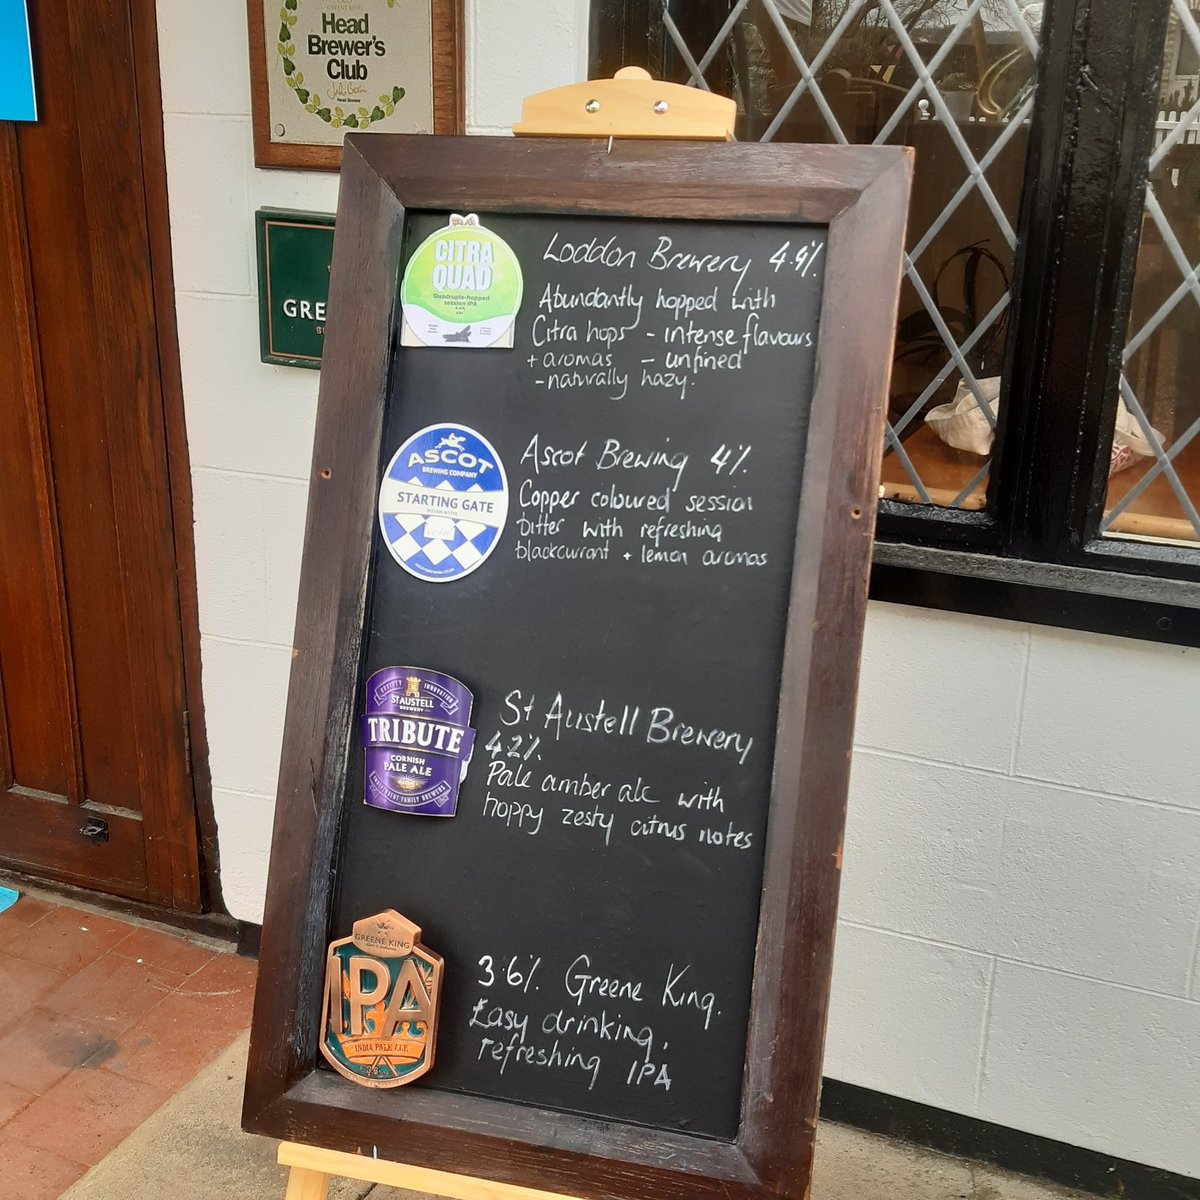 Head
Brewer's
Club
Head Brewer
GRE
CITRA
QUAD
Quadruple-hopped
session IPA
Loddon Brewery 4.4%.
Abundantly hopped with
Citra hops - intense flavours
+ aromas - unfined
- naturally hazy.
ASCOT
BREWING COMPANY
STARTING GATE
SESSION BITTER
Ascot Brewing 4%.
Copper coloured session
bitter with refreshing
blackcurrant + lemon aromas
ST AUSTELL
BREWERY
TRIBUTE
CORNISH
PALE ALE
St Austell Brewery
4.2%.
Pale amber ale with
hoppy zesty citrus notes
GREENE KING
IPA
INDIA PALE ALE
3.6%. Greene King.
Easy drinking,
refreshing IPA